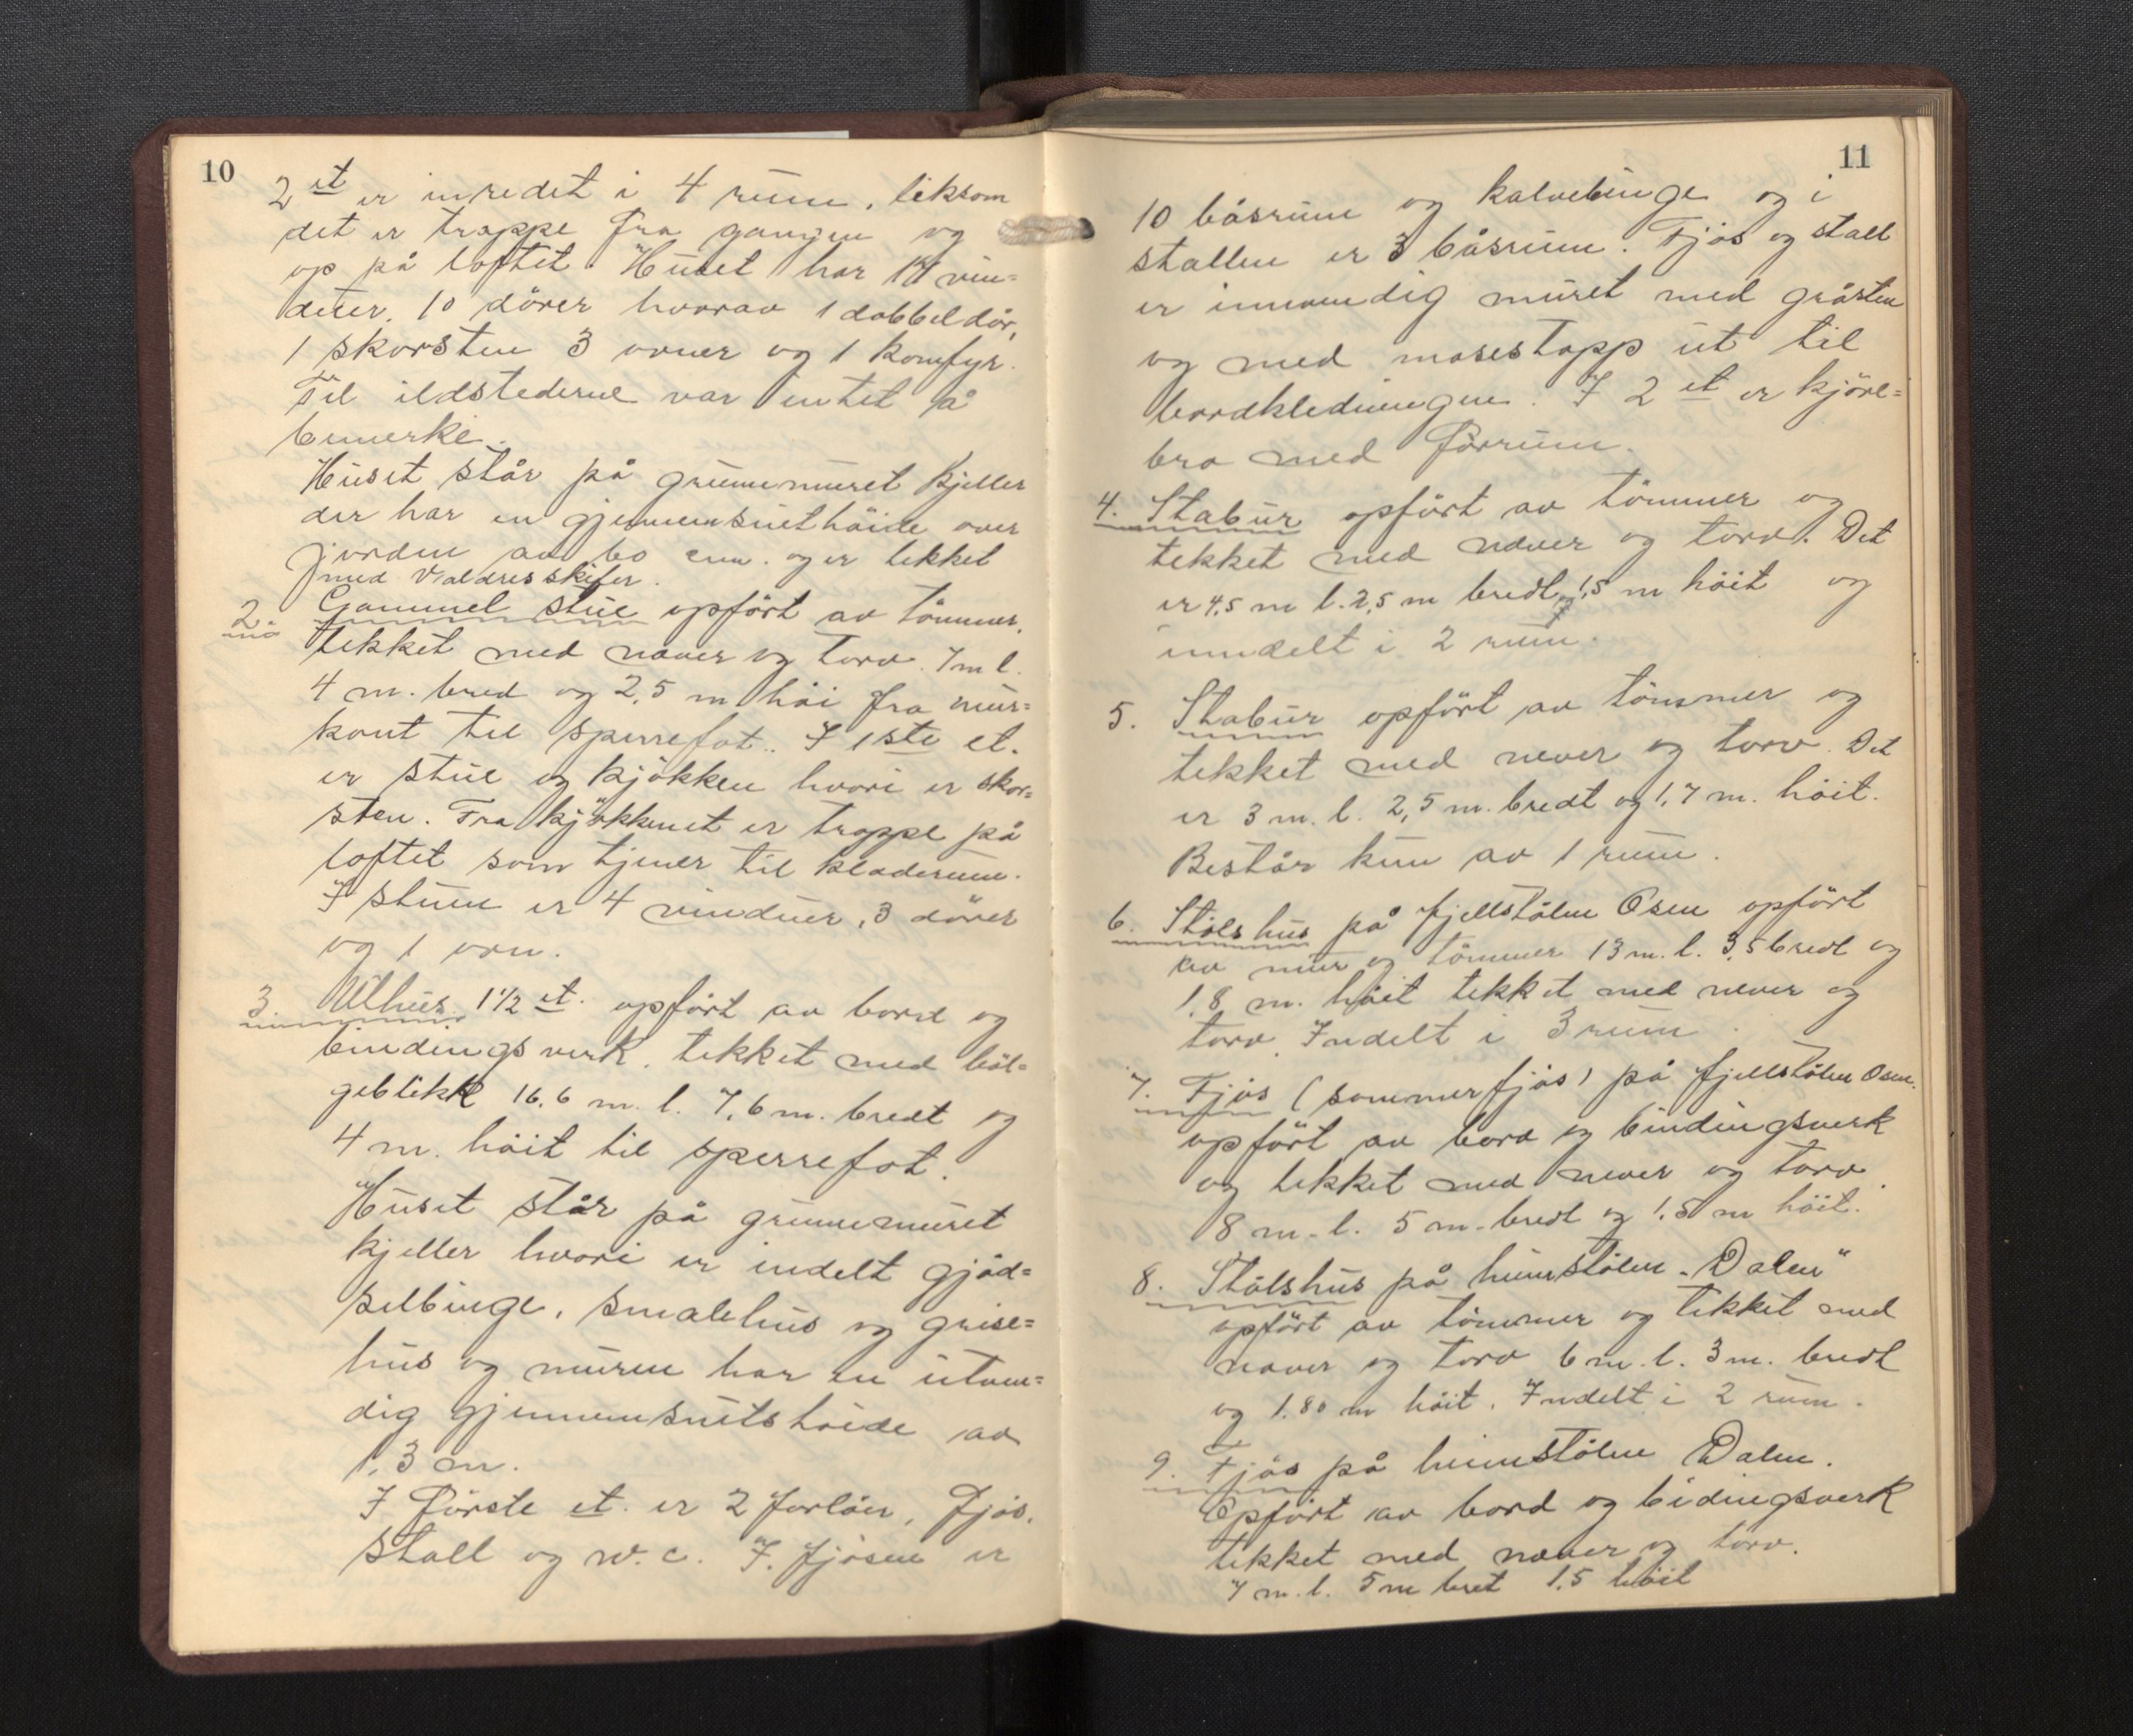 10
2 et er inredet i 4 rum, liksom
det er trappe fra gangen og
op på loftet. Huset har 14 vin=
duer, 10 dörer hvorav 1 dobbeldör,
1 skorsten 3 ovner og 1 komfyr.
Til ildstederne var intet å
bemerke.
Huset står på grunnmuret kjeller
der har en gjennemsnethöide over
jorden av 60 cm. og er tekket
med Valdresskifer.
2. Gammel stue opfört av tömmer,
tekket med never og torv. 7 m l.
4 m. bred og 2,5 m höi fra mur=
kant til sperrefot. I 1ste et.
er stue og kjökken hvori er skor=
sten. Fra kjökkenet er trappe på
loftet som tjener til kladerum.
I stuen er 4 vinduer, 3 dörer
og 1 ovn.
3. Uthus 1 1/2 et. opfört av bord og
bindingsverk, tekket med böl=
geblikk 16,6 m. l. 7,6 m. bredt og
4 m. höit til sperrefot.
Huset står på grunnemuret
kjeller hvori er indelt gjöd=
selbinge, smalehus og grise=
hus og muren har en utven=
dig gjennemsnitshöide av
1,3 m.
I förste et. er 2 forlöer, fjös,
stall og w. c. I fjösen er
11
10 båsrum og kalvebinge og i
stallen er 3 båsrum. Fjös og stall
er innvendig muret med gråsten
og med mosestopp ut til
bordkledningen. I 2 et er kjöre=
bro med forrum.
4. Stabur opfört av tömmer og
tekket med never og torv. Det
er 4,5 m l. 2,5 m bredt og 1,5 m höit og
inndelt i 2 rum.
5. Stabur opfört av tömmer og
tekket med never og torv. Det
er 3 m. l. 2,5 m. bredt og 1,7 m. höit.
Består kun av 1 rum.
6. Stöls hus på fjellstölen Osen opfört
av mur og tömmer 13 m. l. 3,5 bredt og
1,8 m. höit tekket med never og
torv. Indelt i 3 rum.
7. Fjös (sommerfjös) på fjellstölen Osen.
opfört av bord og bindingsverk
og tekket med never og torv.
8 m. l. 5 m. bredt og 1,8 m höit.
8. Stölshus på heimstölen "Dalen"
opfört av tömmer og tekket med
never og torv 6 m. l. 3 m. bredt
og 1.80 m höit. Indelt i 2 rum.
9. Fjös på heimstölen Dalen.
Opfört av bord og bidingsverk
tekket med never og torv.
7 m. l. 5 m bret 1,5 höit